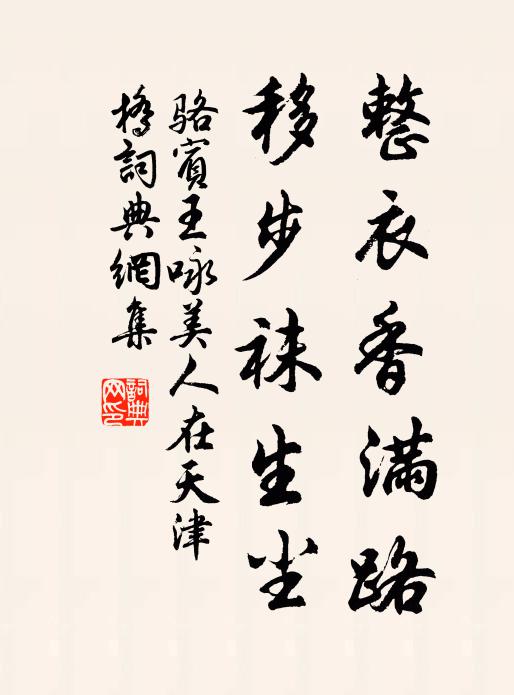 整衣香满路
移步袜生尘
骆宾王咏美人在天津
桥詞典網集
詞典网印